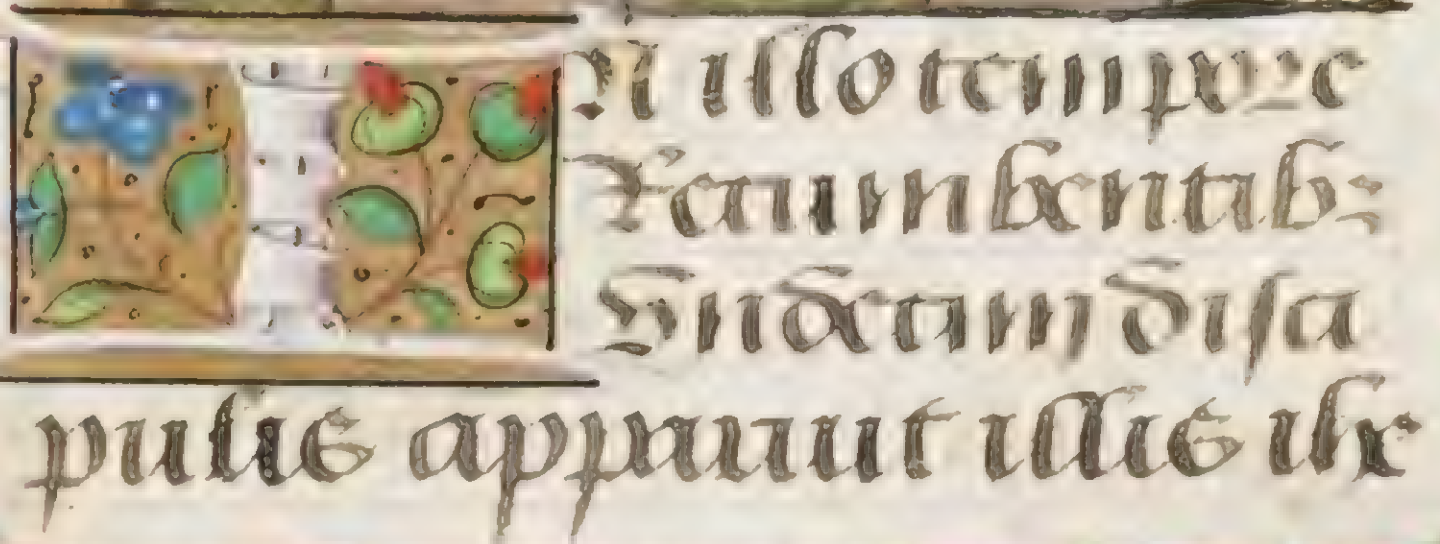 IN illo tempore
Recumbentib;
Undecim disci
pulis apparuit illis ihc